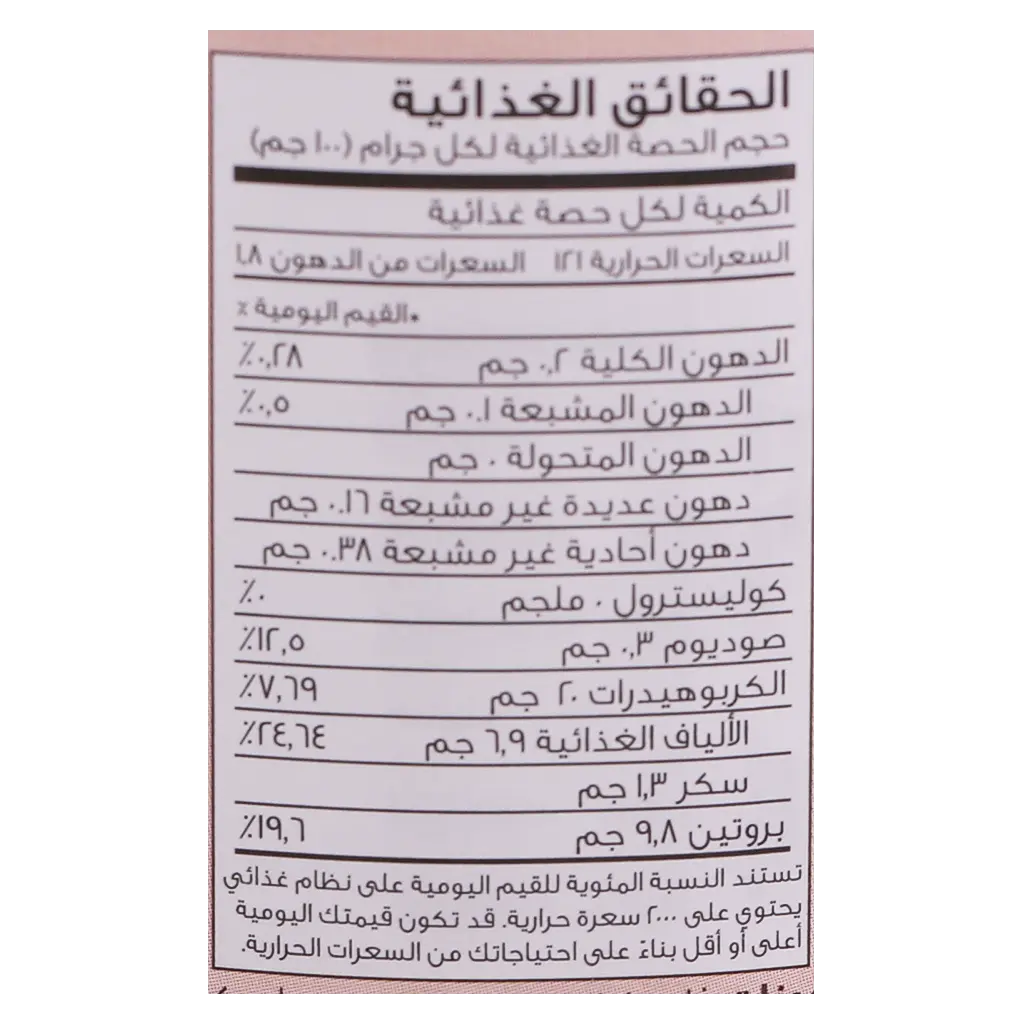 الحقائق الغذائية
حجم الحصة الغذائية لكل جرام (١٠٠ جم)
الكمية لكل حصة غذائية
السعرات الحرارية ١٢١ السعرات من الدهون ١.٨
*القيم اليومية ٪
الدهون الكلية ٠,٢ جم ٠,٢٨٪
الدهون المشبعة ٠.١ جم ٠,٥٪
الدهون المتحولة ٠ جم
دهون عديدة غير مشبعة ٠.١٦ جم
دهون أحادية غير مشبعة ٠.٣٨ جم
كوليسترول ٠ ملجم ٠٪
صوديوم ٠,٣ جم ١٢,٥٪
الكربوهيدرات ٢٠ جم ٧,٦٩٪
الألياف الغذائية ٦,٩ جم ٢٤,٦٤٪
سكر ١,٣ جم
بروتين ٩,٨ جم ١٩,٦٪
تستند النسبة المئوية للقيم اليومية على نظام غذائي
يحتوي على ٢٠٠٠ سعرة حرارية. قد تكون قيمتك اليومية
أعلى أو أقل بناءً على احتياجاتك من السعرات الحرارية.